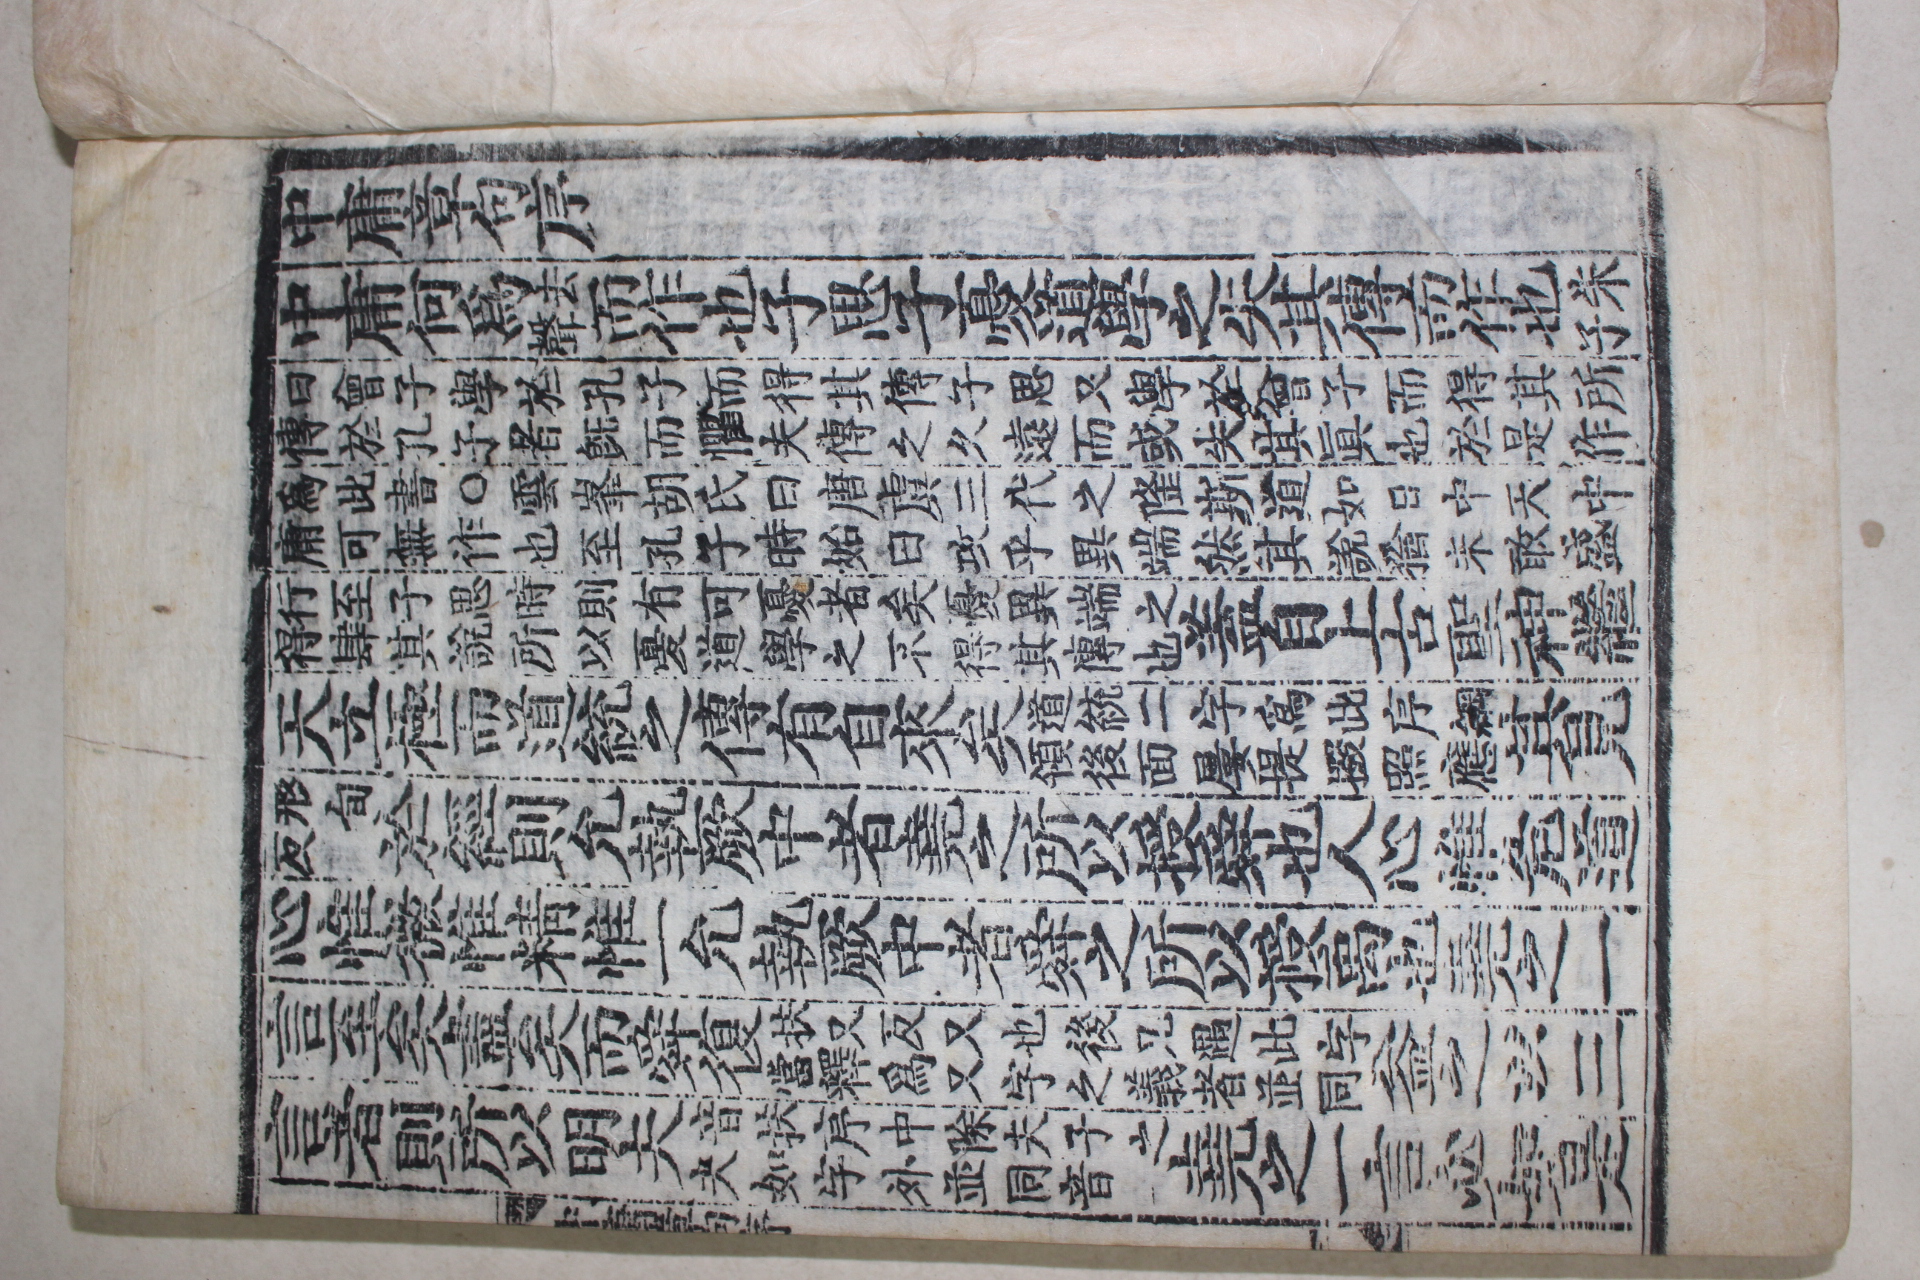 中庸章句序
中庸何爲去聲而作也子思子憂道學之失其傳而作也朱子
曰曾子學於孔子而得其傳子思又學於曾子而得其所
傳於孔子者旣而懼夫傳之久遠而或失其眞也於是作
爲此書○雲峯胡氏曰唐虞三代之隆斯道如日中天中
庸可無作也至孔子時始曰攻乎異端然其說猶未敢盛
行至子思時則有可憂者矣憂異端之
得肆其說所以憂道學之不得其傳也蓋自上古聖神繼
天立極而道統之傳有自來矣道統二字爲此序綱
領後面屢提掇照應其見
形甸
反於經則允執厥中者堯之所以授舜也人心惟危道
心惟微惟精惟一允執厥中者舜之所以授禹也堯之一
言至矣盡矣而舜復扶又反又也後凡遇此字
當釋爲又字之義者並同益之以三
言者則所以明夫音扶序中除夫子之
夫如字外並同音堯之一言必如是
中庸章句序